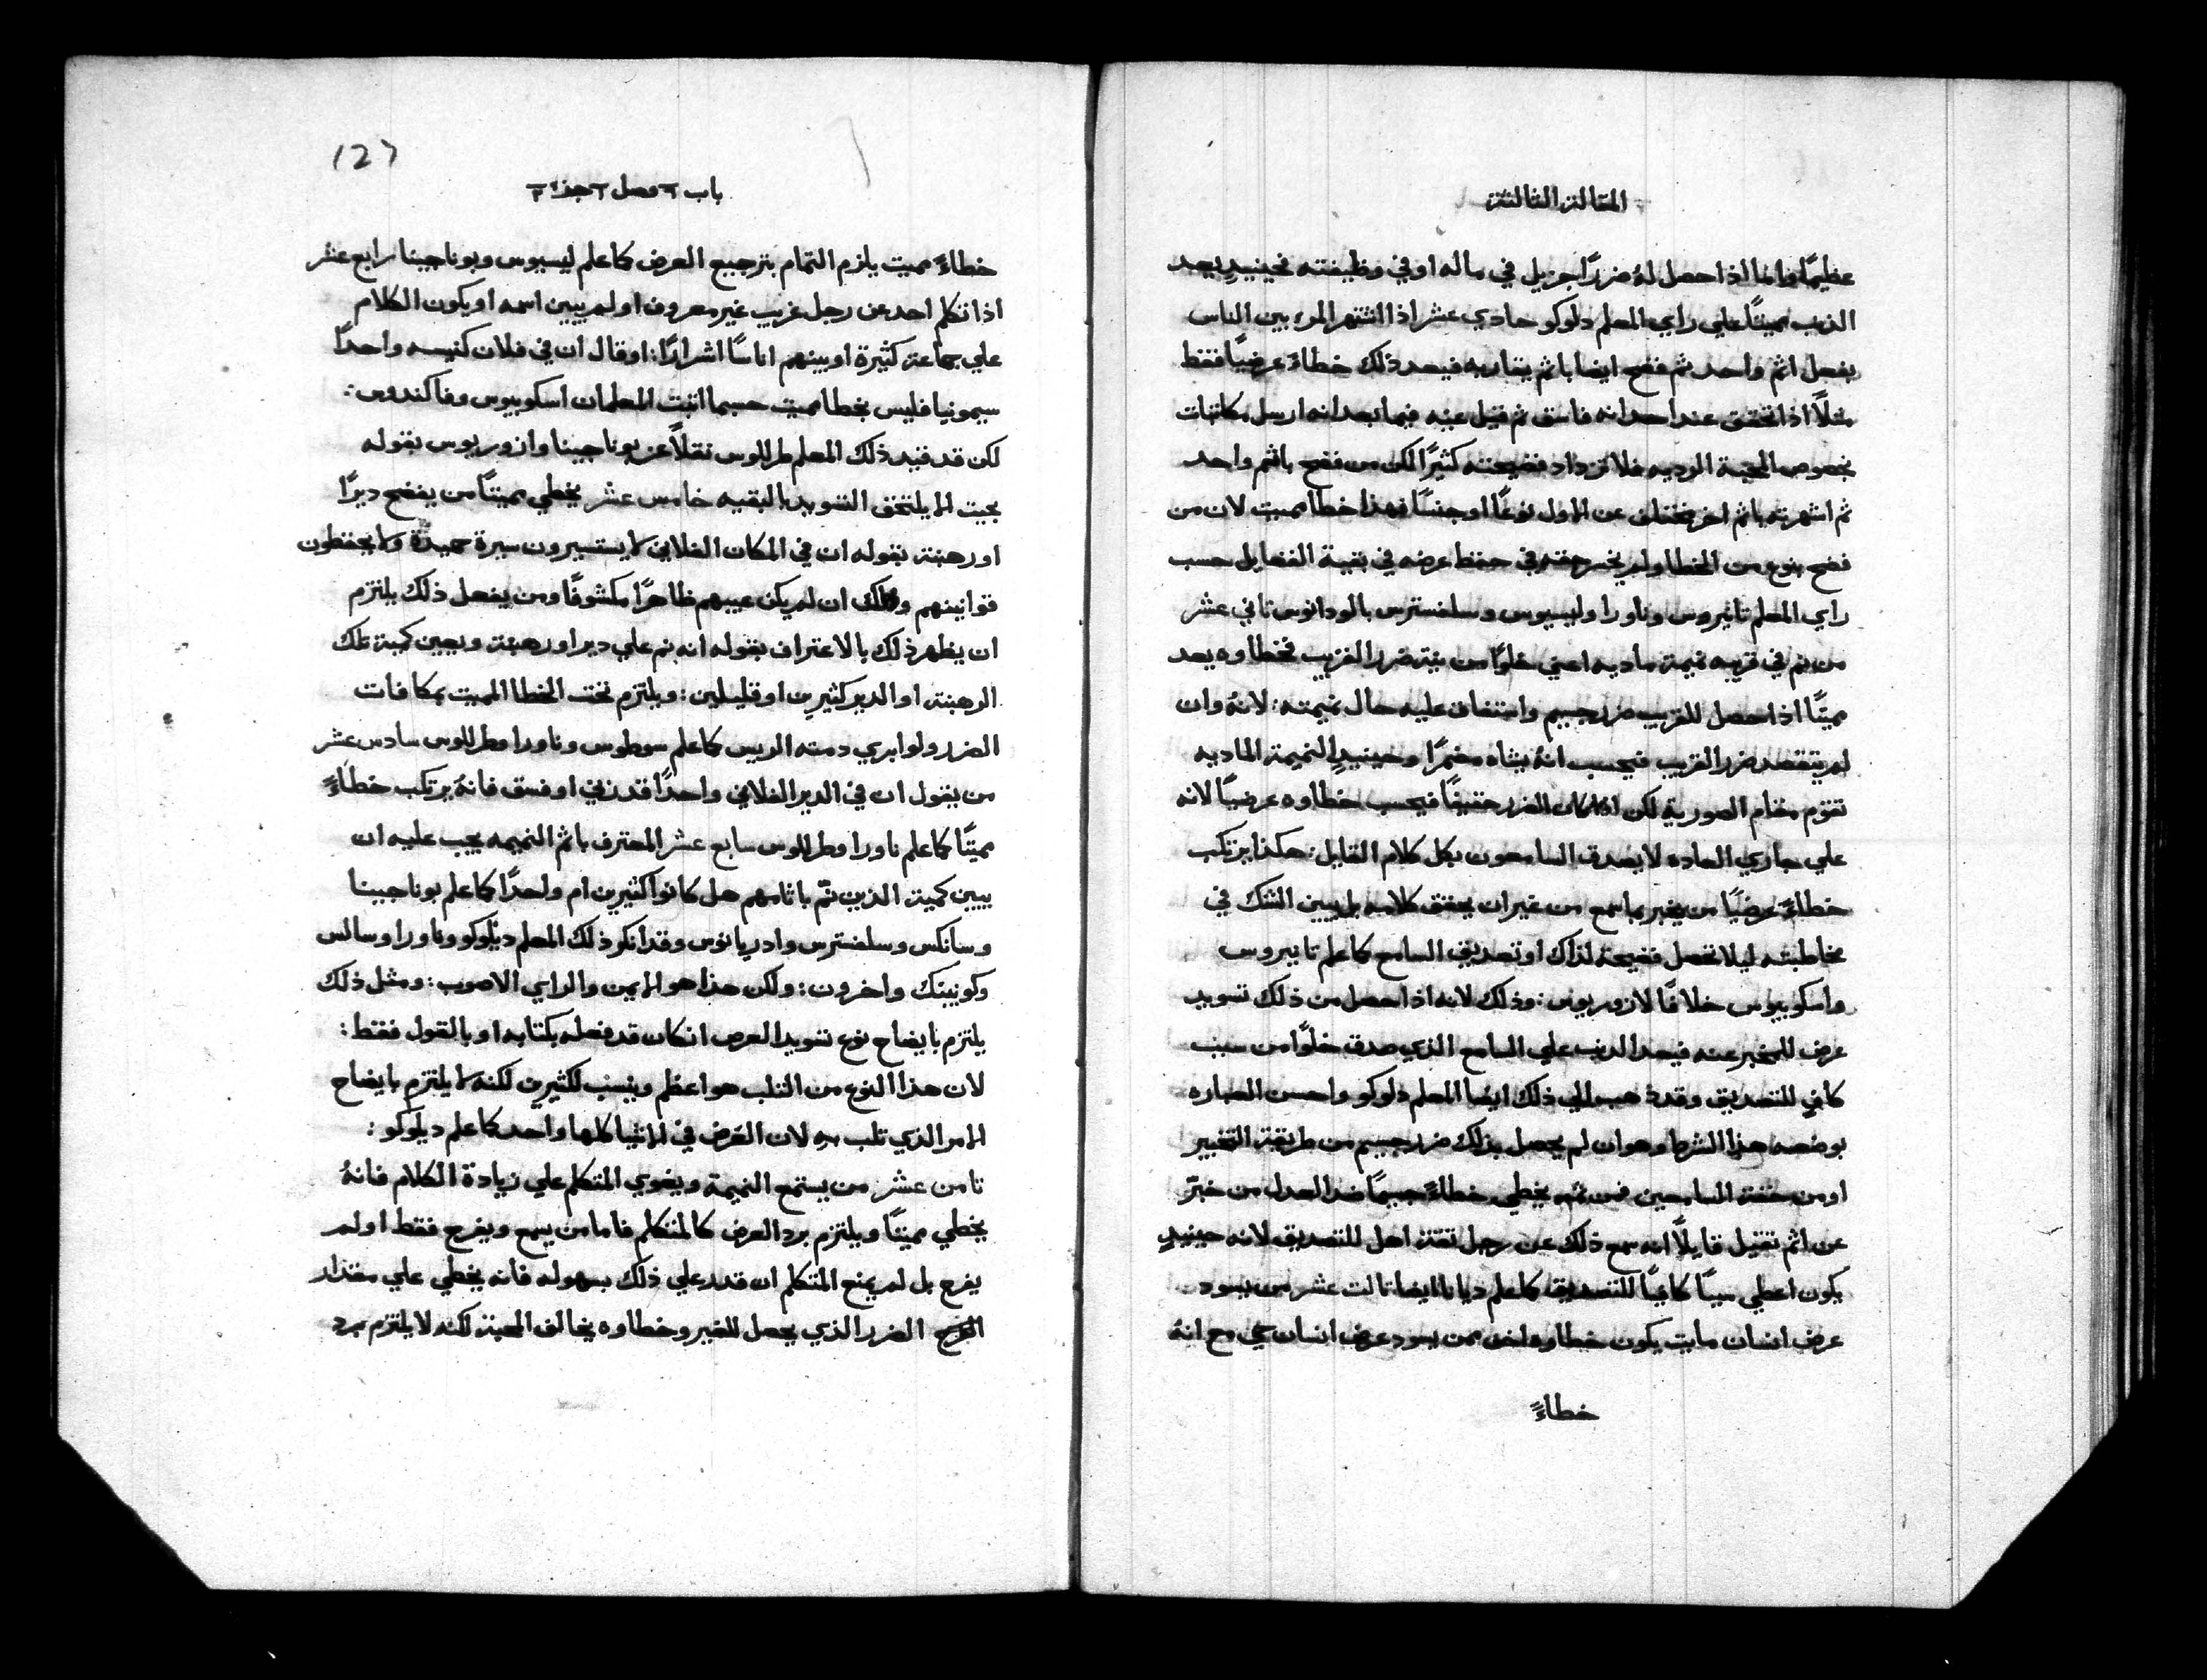 المقالة الثالثة
عظيمًا وانما اذا حصل لهُ ضررًا جزيل في ماله او في وظيفته فحينيدٍ يعد
الذنب مميتًا علي راي المعلم دلوكو حادي عشر اذا اشتهر المرء بين الناس
بفعل اثم واحد ثم فضح ايضا باثم يقاربه فيعد ذلك خطاءً عرضيًا فقط
مثلًا اذا تحقق عند احد انه فاسق ثم قيل عنه فيما بعد انه ارسل مكاتبات
بخصوص المحبة الرديه فلا تزداد فضيحته كثيرًا لكن من فضح باثم واحد
ثم اشهرته باثم اخر مختلف عن الاول نوعًا او جنسًا فهذا خطا مميت لان من
فضح بنوع من الخطا ولم يخسر حقه في حفظ عرضه في بقية الفضايل حسب
راي المعلم تانيروس وناورا وليسيوس وسلفسترس بالودانوس ثاني عشر
من نم في قريبه نميمة ماديه اعني خلوًا من نية ضرر القريب فخطاوه يعد
مميتًا اذا حصل للقريب ضرر جسيم واستفاق عليه حال نميمته: لانهُ وان
لم يتقصد ضرر القريب فيحسب انهُ يشاه مضمرًا وحينيدٍ النميمة الماديه
تقوم مقام الصورية لكن اذا كان الضرر خفيفًا فيحسب خطاوه عرضيًا لانه
علي جاري العاده لا يصدق السامعون بكل كلام القايل: هكذا يرتكب
خطاءً عرضيًا من يخبر بما سمع من غير ان يحقق كلامه بل يبين الشك في
مخاطبته ليلا تحصل فضيحة لذاك او تصديق السامع كما علم تانيروس
واسكوبيوس خلافًا لازوريوس: وذلك لانه اذا حصل من ذلك تسويد
عرض للمخبر عنه فيعد الذنب علي السامع الذي صدق خلوًا من سبب
كافٍ للتصديق وقد ذهب الي ذلك ايضا المعلم دلوكو واحسن العباره
بوضعه هذا الشرط وهو ان لم يحصل بذلك ضرر جسيم من طريقة التخبير
او من خفة السامعين فمن ثم يخطي خطاءً جسيمًا ضد العدل من خبّر
عن اثم ثقيل قايلًا انه سمع ذلك عن رجل ثقة اهل للتصديق لانه حينيدٍ
يكون اعطي سببًا كافيًا للتصديق كما علم ديانا ايضا ثالث عشر من يسود
عرض انسان مايت يكون خطاوه اخف ممن يسود عرض انسان حي مع انهُ
خطاءً
127
باب ٦ فصل ٢ جزء ٣
خطاءً مميت يلزم التمام بترجيع العرض كما علم ليسيوس وبوناجينا رابع عشر
اذا تكلم احد عن رجل غريب غير معروف او لم يبين اسمه او يكون الكلام
علي جماعة كثيرة او بينهم اناسًا اشرارًا: او قال ان في فلان كنيسه واحدًا
سيمونيا فليس بخطا مميت حسبما اثبت المعلمان اسكوبيوس وفاكندوس:
لكن قد فند ذلك المعلم طرللوس نقلًا عن بوناجينا وازوريوس بقوله
بحيث لا يلتحق التسويد بالبقيه خامس عشر يخطي مميتًا من يفضح ديرًا
او رهبنة بقوله ان في المكان الفلاني لا يستسيرون سيرة حميدة ولا يحفظون
قوانينهم وذلك ان لم يكن عيبهم ظاهرًا مكشوفًا ومن يفعل ذلك يلتزم
ان يظهر ذلك بالاعتراف بقوله انه نم علي دير او رهبنة ويعين كمية تلك
الرهبنة او الدير كثيرين او قليلين: ويلتزم تحت الخطا المميت بمكافات
الضرر ولو ابري دمته الريس كما علم سوطوس وناورا وطرللوس سادس عشر
من يقول ان في الدير الفلاني واحدًا قد زني او فسق فانهُ يرتكب خطاءً
مميتًا كما علم ناورا وطرللوس سابع عشر المعترف باثم النميمه يجب عليه ان
يبين كمية الذين نمّ باثامهم هل كانوا كثيرين ام واحدًا كما علم بوناجينا
وسانكس وسلفسترس وادريانوس وقد انكر ذلك المعلم ديلوكو وناورا وسالس
وكونينك واخرون: ولكن هذا هو الايمن والراي الاصوب: ومثل ذلك
يلتزم بايضاح نوع تسويد العرض ان كان قد فعله بكتابه او بالقول فقط:
لان هذا النوع من الثلب هو اعظم وينسب لكثيرين لكنه لا يلتزم بايضاح
الامر الذي ثلب به لان العرض في الاشيا كلها واحد كما علم ديلوكو:
ثامن عشر من يستمع النميمة ويغوي المتكلم علي زيادة الكلام فانهُ
يخطي مميتًا ويلتزم برد العرض كالمتكلم فاما من يسمع ويفرح فقط او لم
يفرح بل لم يمنع المتكلم ان قدر علي ذلك بسهوله فانه يخطي علي مقدار
الضرر الذي يحصل للغير وخطاوه يخالف المحبة لكنه لا يلتزم برد